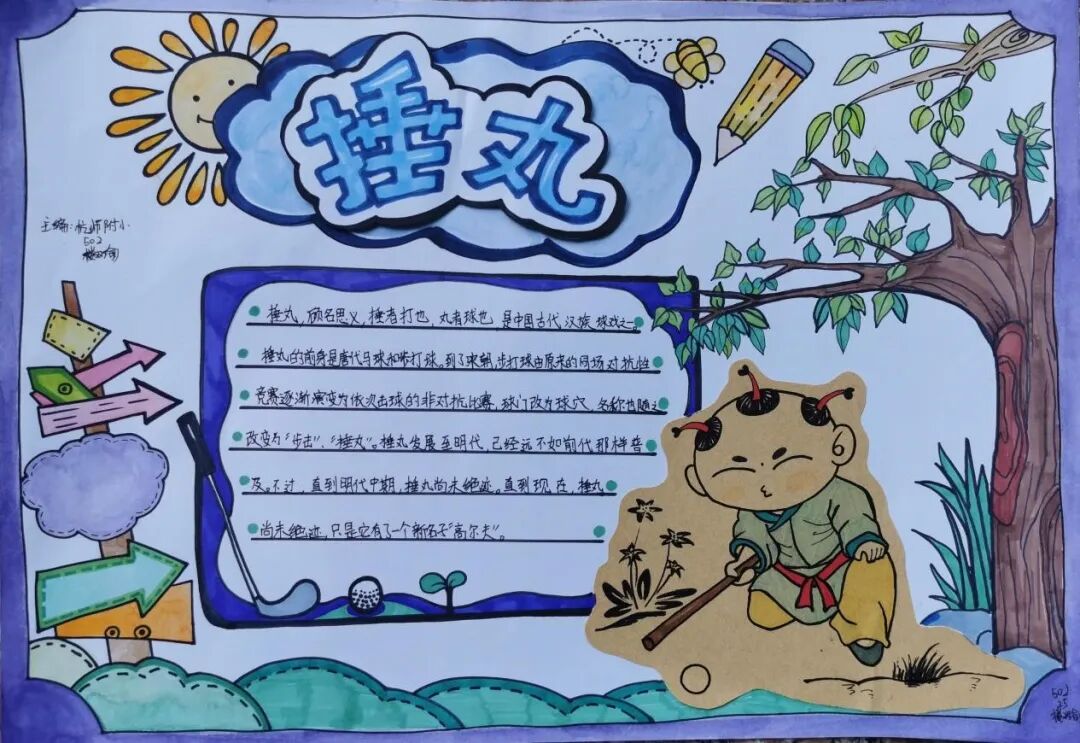 捶丸
主编:杭师附小
502
捶丸,顾名思义,捶者打也,丸者球也,是中国古代汉族球戏之一。
捶丸的前身是唐代马球和步打球。到了宋朝,步打球由原来的同场对抗性
竞赛逐渐演变为依次击球的非对抗比赛,球门改为球穴,名称也随之
改变为“步击”、“捶丸”。捶丸发展至明代,已经远不如前代那样普
及。不过,直到明代中期,捶丸尚未绝迹。直到现在,捶丸
尚未绝迹,只是它有了一个新名字“高尔夫”。
502